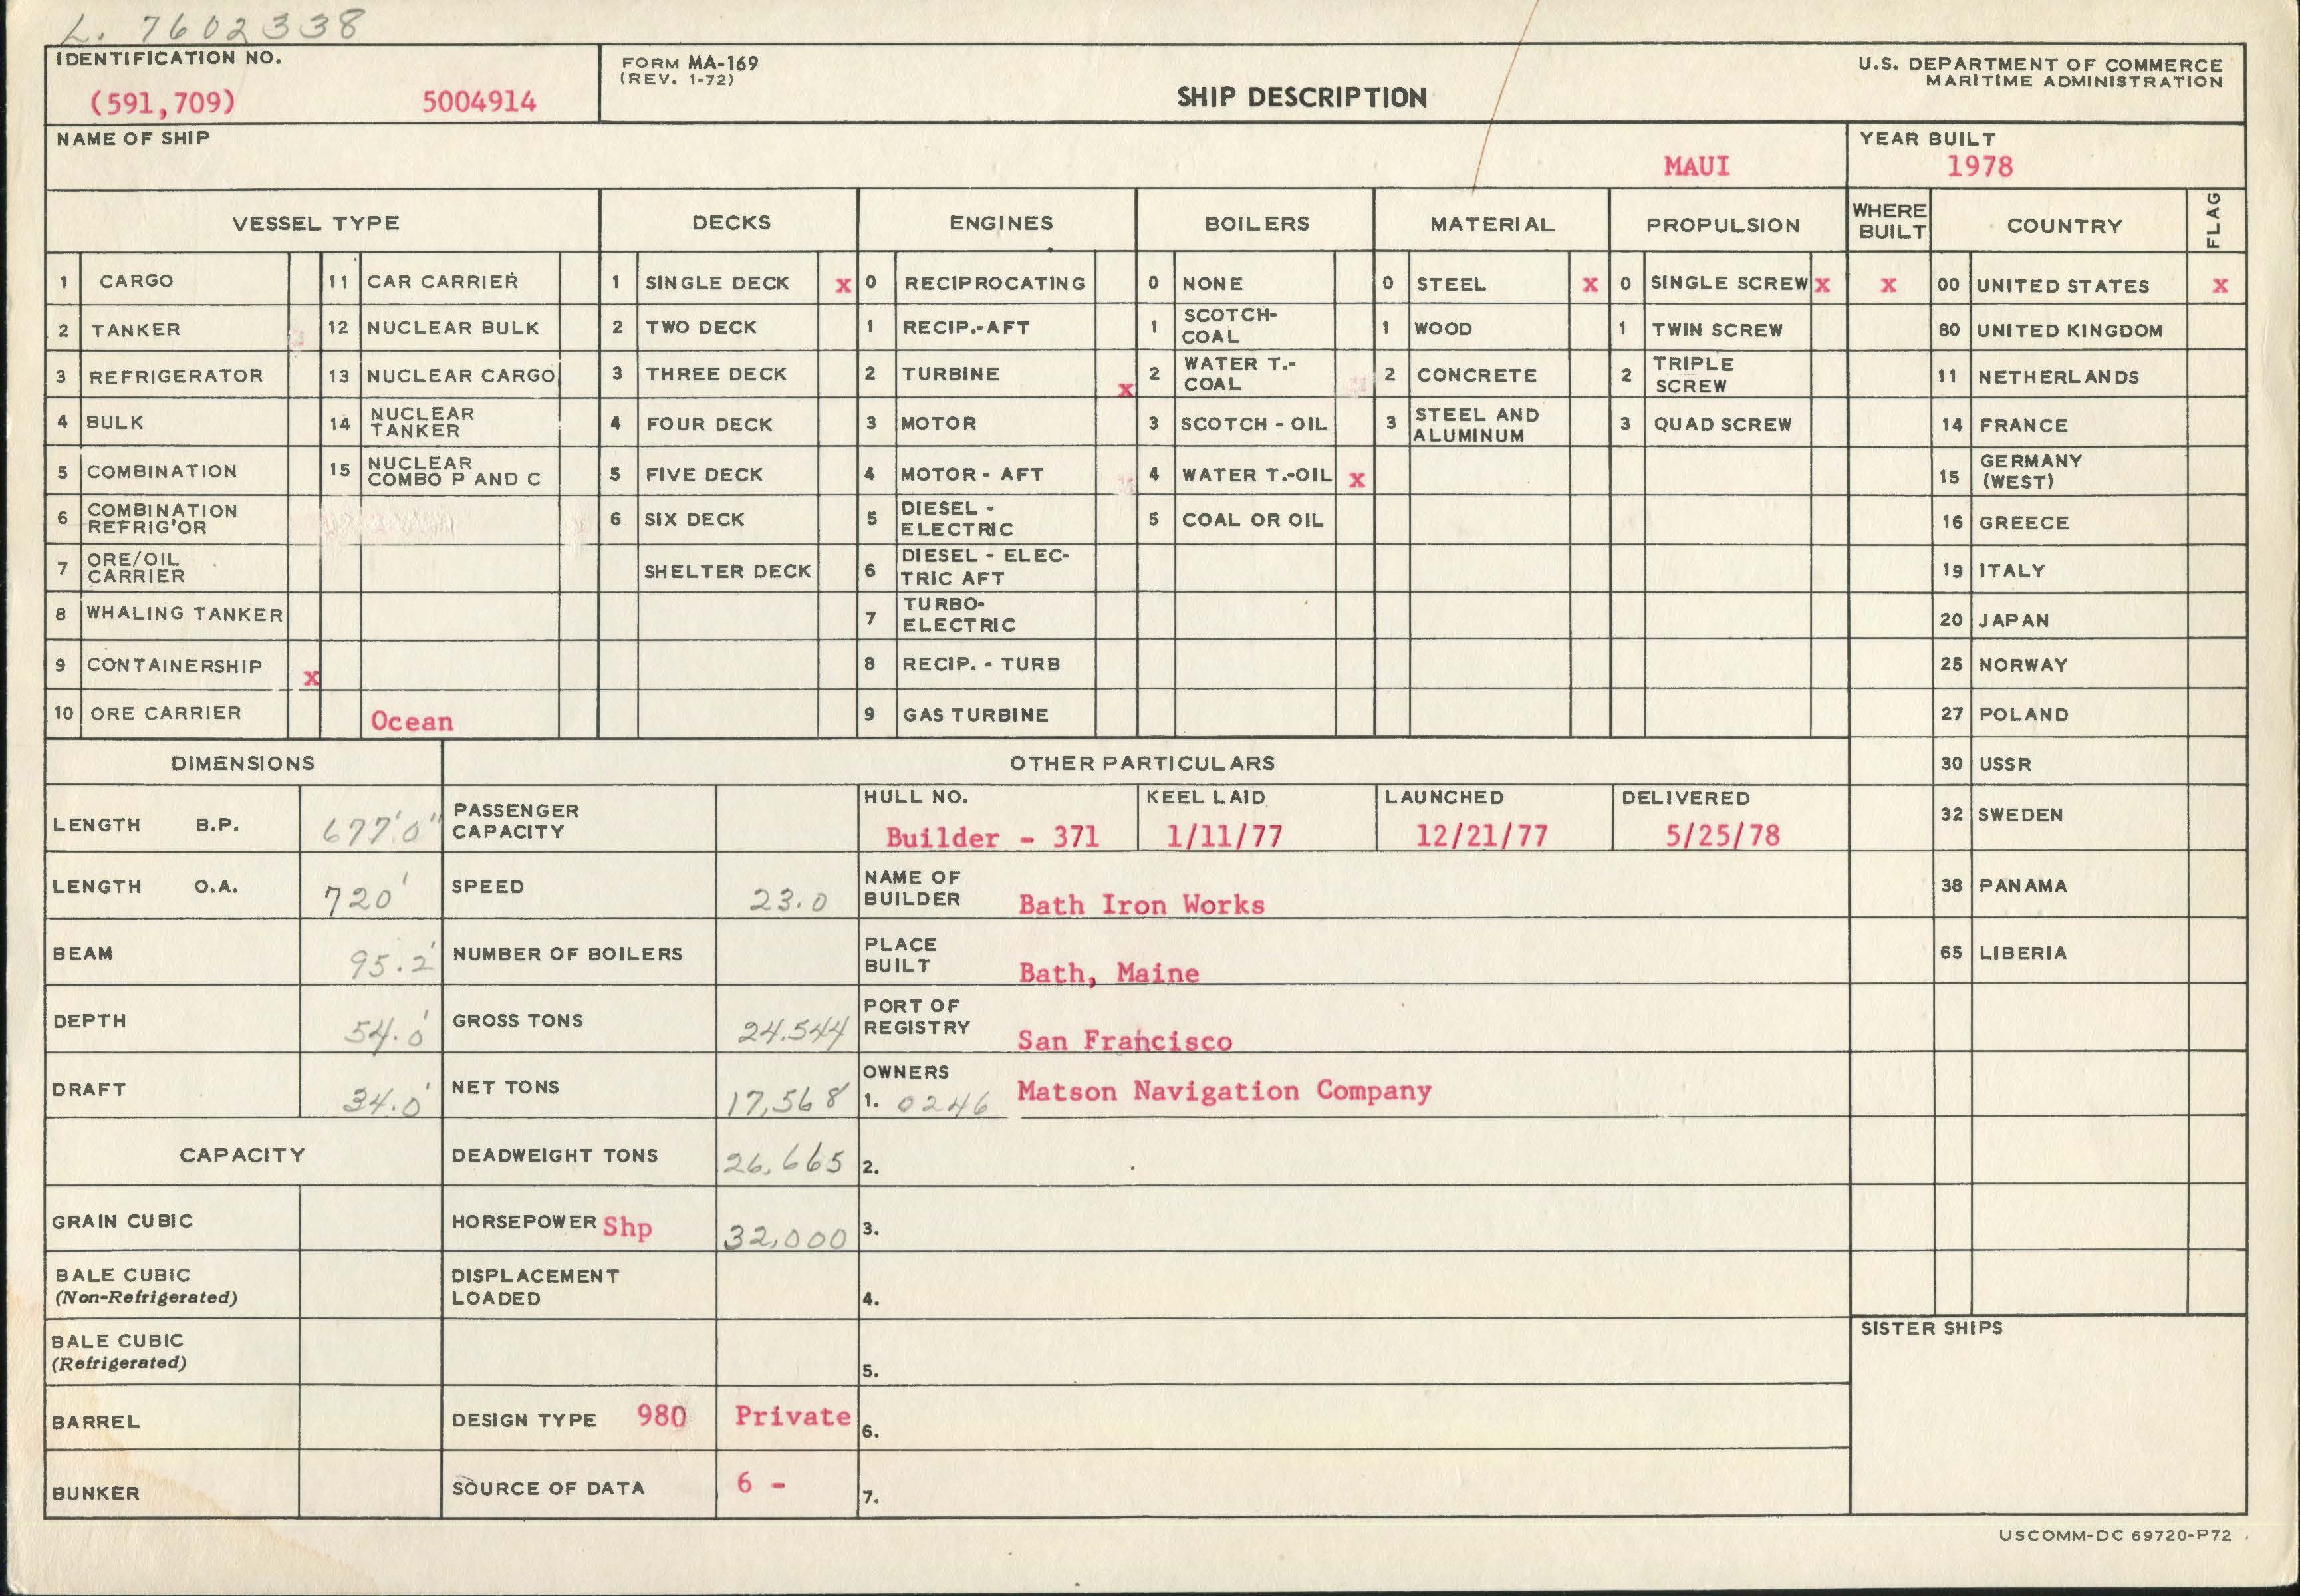 L. 7602338
IDENTIFICATION NO.
(591,709) 5004914
FORM MA-169
(REV. 1-72)
SHIP DESCRIPTION
U.S. DEPARTMENT OF COMMERCE
MARITIME ADMINISTRATION
NAME OF SHIP
MAUI
YEAR BUILT
1978
VESSEL TYPE DECKS ENGINES BOILERS MATERIAL PROPULSION WHERE BUILT COUNTRY FLAG
1 CARGO 11 CAR CARRIER 1 SINGLE DECK x 0 RECIPROCATING 0 NONE 0 STEEL x 0 SINGLE SCREW x x 00 UNITED STATES x
2 TANKER 12 NUCLEAR BULK 2 TWO DECK 1 RECIP.-AFT 1 SCOTCH-COAL 1 WOOD 1 TWIN SCREW 80 UNITED KINGDOM
3 REFRIGERATOR 13 NUCLEAR CARGO 3 THREE DECK 2 TURBINE x 2 WATER T.-COAL 2 CONCRETE 2 TRIPLE SCREW 11 NETHERLANDS
4 BULK 14 NUCLEAR TANKER 4 FOUR DECK 3 MOTOR 3 SCOTCH - OIL 3 STEEL AND ALUMINUM 3 QUAD SCREW 14 FRANCE
5 COMBINATION 15 NUCLEAR COMBO P AND C 5 FIVE DECK 4 MOTOR - AFT 4 WATER T.-OIL x 15 GERMANY (WEST)
6 COMBINATION REFRIG'OR 6 SIX DECK 5 DIESEL - ELECTRIC 5 COAL OR OIL 16 GREECE
7 ORE/OIL CARRIER SHELTER DECK 6 DIESEL - ELEC-TRIC AFT 19 ITALY
8 WHALING TANKER 7 TURBO-ELECTRIC 20 JAPAN
9 CONTAINERSHIP x 8 RECIP. - TURB 25 NORWAY
10 ORE CARRIER Ocean 9 GAS TURBINE 27 POLAND
DIMENSIONS OTHER PARTICULARS 30 USSR
LENGTH B.P. 677'0" PASSENGER CAPACITY HULL NO. Builder - 371 KEEL LAID 1/11/77 LAUNCHED 12/21/77 DELIVERED 5/25/78 32 SWEDEN
LENGTH O.A. 720' SPEED 23.0 NAME OF BUILDER Bath Iron Works 38 PANAMA
BEAM 95.2' NUMBER OF BOILERS PLACE BUILT Bath, Maine 65 LIBERIA
DEPTH 54.0' GROSS TONS 24.544 PORT OF REGISTRY San Francisco
DRAFT 34.0' NET TONS 17,568 OWNERS 1. 0246 Matson Navigation Company
CAPACITY DEADWEIGHT TONS 26,665 2.
GRAIN CUBIC HORSEPOWER Shp 32,000 3.
BALE CUBIC (Non-Refrigerated) DISPLACEMENT LOADED 4.
SISTER SHIPS
BALE CUBIC (Refrigerated) 5.
BARREL DESIGN TYPE 980 Private 6.
BUNKER SOURCE OF DATA 6 - 7.
USCOMM-DC 69720-P72